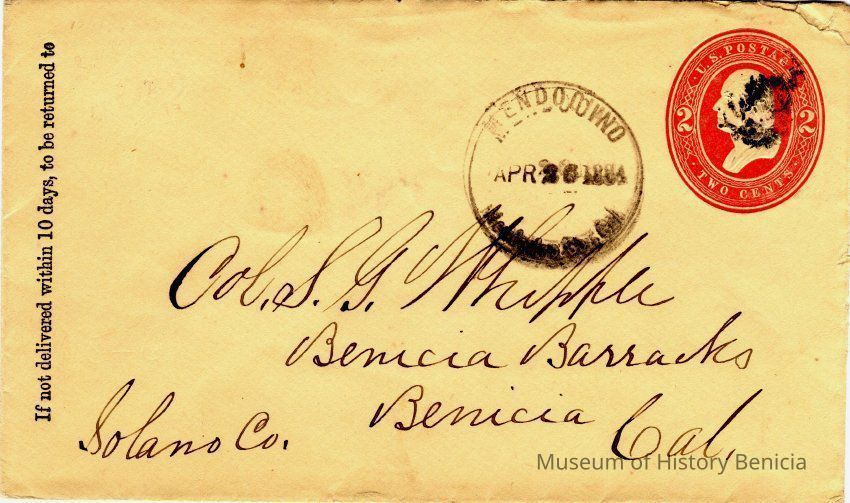 If not delivered within 10 days, to be returned to
U.S. POSTAGE
2 2
TWO CENTS
MENDOCINO
APR 26 1884
Col. S. G. Whipple
Benicia Barracks
Benicia
Solano Co. Cal.
Museum of History Benicia